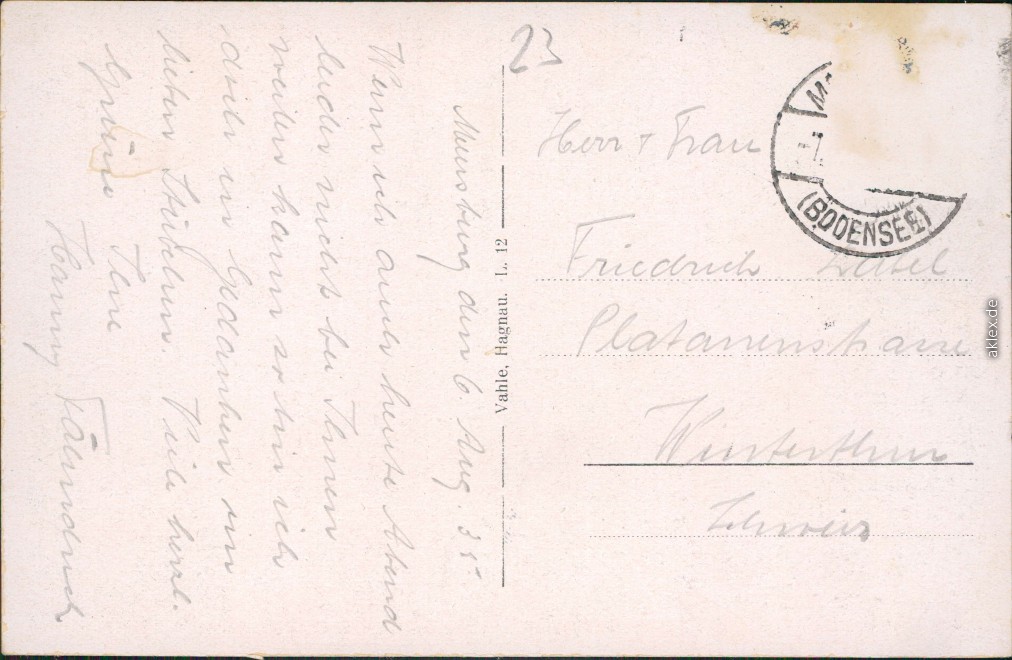 Meersburg den 6. Aug. 35
Wenn ich auch heute Abend
leider nicht bei Ihnen
weilen kann so bin ich
doch in Gedanken im
lieben Stübchen. Viele herzl.
Grüsse Ihre
Hanny
23
Herr & Frau
Friedrich
Platanenstrasse
Winterthur
Schweiz
Vahle, Hagnau. L. 12
(BODENSEE)
aklex.de